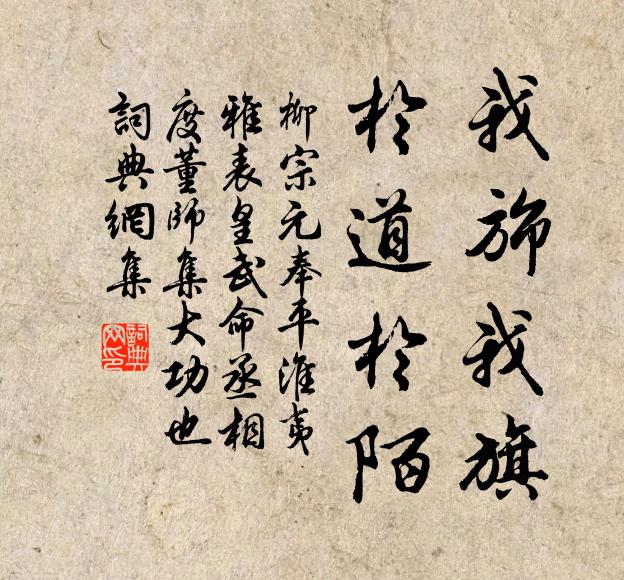 我旆我旗
於道於陌
柳宗元奉平淮夷
雅表皇武命丞相
度董師集大功也
詞典網集
詞典
网印